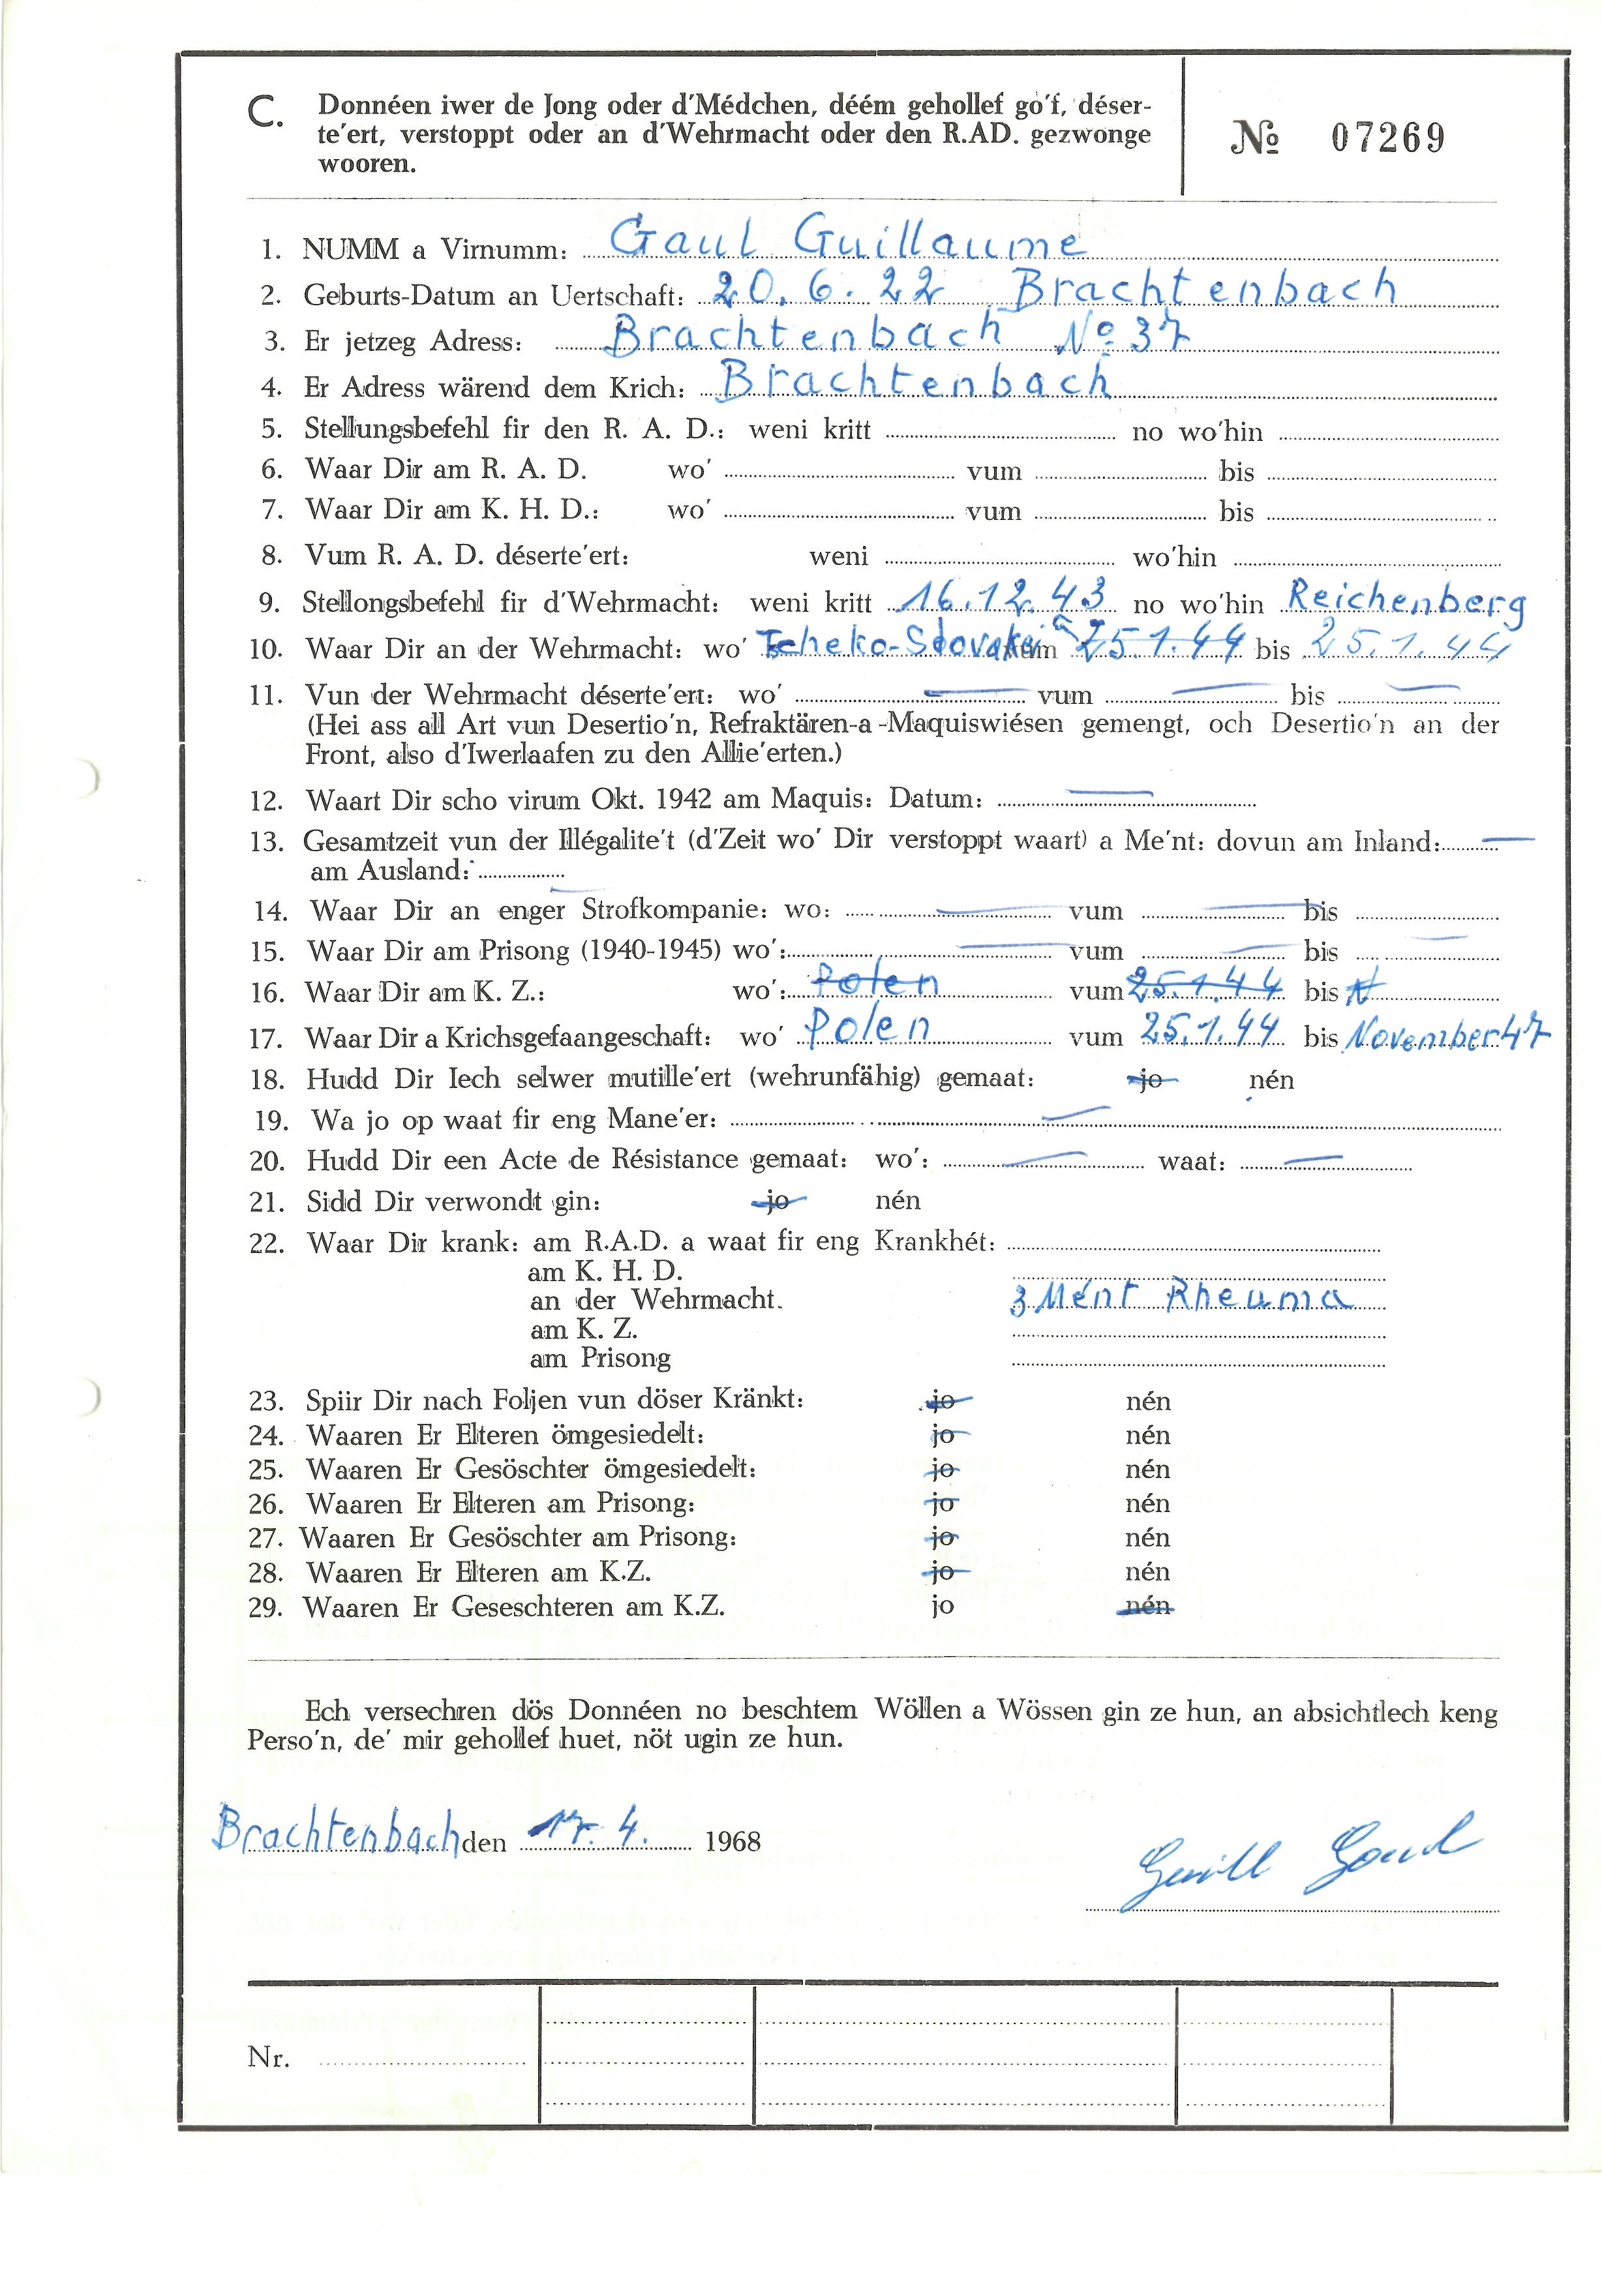 C. Donnéen iwer de Jong oder d'Médchen, déém gehollef go'f, déser-
te'ert, verstoppt oder an d'Wehrmacht oder den R.AD. gezwonge
wooren.
№ 07269
1. NUMM a Virnumm: Gaul Guillaume
2. Geburts-Datum an Uertschaft: 20.6.22 Brachtenbach
3. Er jetzeg Adress: Brachtenbach No 37
4. Er Adress wärend dem Krich: Brachtenbach
5. Stellungsbefehl fir den R. A. D.: weni kritt no wo'hin
6. Waar Dir am R. A. D. wo' vum bis
7. Waar Dir am K. H. D.: wo' vum bis
8. Vum R. A. D. déserte'ert: weni wo'hin
9. Stellongsbefehl fir d'Wehrmacht: weni kritt 16.12.43 no wo'hin Reichenberg
10. Waar Dir an der Wehrmacht: wo' Tcheko-Slovakei vum 25.1.44 bis 25.1.44
11. Vun der Wehrmacht déserte'ert: wo' — vum — bis —
(Hei ass all Art vun Desertio'n, Refraktären-a-Maquiswiésen gemengt, och Desertio'n an der
Front, also d'Iwerlaafen zu den Allie'erten.)
12. Waart Dir scho virum Okt. 1942 am Maquis: Datum: —
13. Gesamtzeit vun der Illégalite't (d'Zeit wo' Dir verstoppt waart) a Me'nt: dovun am Inland: —
am Ausland: —
14. Waar Dir an enger Strofkompanie: wo: — vum — bis
15. Waar Dir am Prisong (1940-1945) wo': — vum — bis —
16. Waar Dir am K. Z.: wo': Polen vum 25.1.44 bis N
17. Waar Dir a Krichsgefaangeschaft: wo' Polen vum 25.1.44 bis November 47
18. Hudd Dir Iech selwer mutille'ert (wehrunfähig) gemaat: jo nén
19. Wa jo op waat fir eng Mane'er: —
20. Hudd Dir een Acte de Résistance gemaat: wo': — waat: —
21. Sidd Dir verwondt gin: jo nén
22. Waar Dir krank: am R.A.D. a waat fir eng Krankhét:
am K. H. D.
an der Wehrmacht. 3 Mént Rheuma
am K. Z.
am Prisong
23. Spiir Dir nach Foljen vun döser Kränkt: jo nén
24. Waaren Er Elteren ömgesiedelt: jo nén
25. Waaren Er Gesöschter ömgesiedelt: jo nén
26. Waaren Er Elteren am Prisong: jo nén
27. Waaren Er Gesöschter am Prisong: jo nén
28. Waaren Er Elteren am K.Z. jo nén
29. Waaren Er Geseschteren am K.Z. jo nén
Ech versechren dös Donnéen no beschtem Wöllen a Wössen gin ze hun, an absichtlech keng
Perso'n, de' mir gehollef huet, nöt ugin ze hun.
Brachtenbach den 17. 4. 1968
Guill Gaul
Nr.